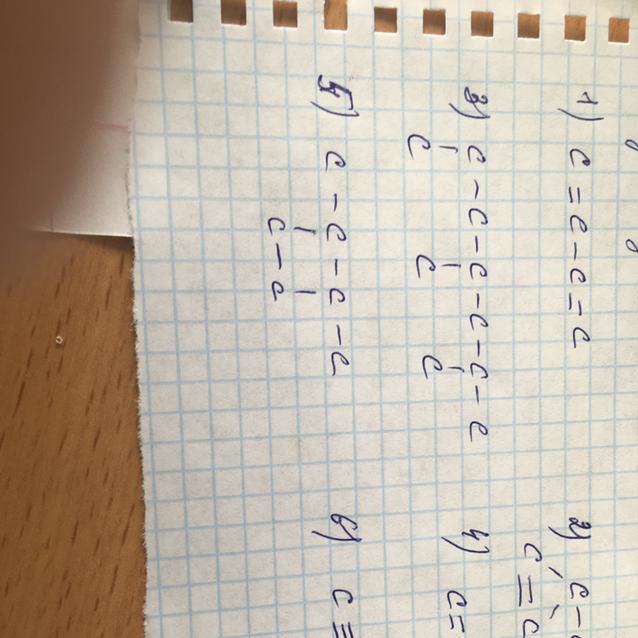 1) C=C-C=C
2) C-
C=C
3) C-C-C-C-C-C
C C C
4) C=
5) C-C-C-C
C-C
6) C≡